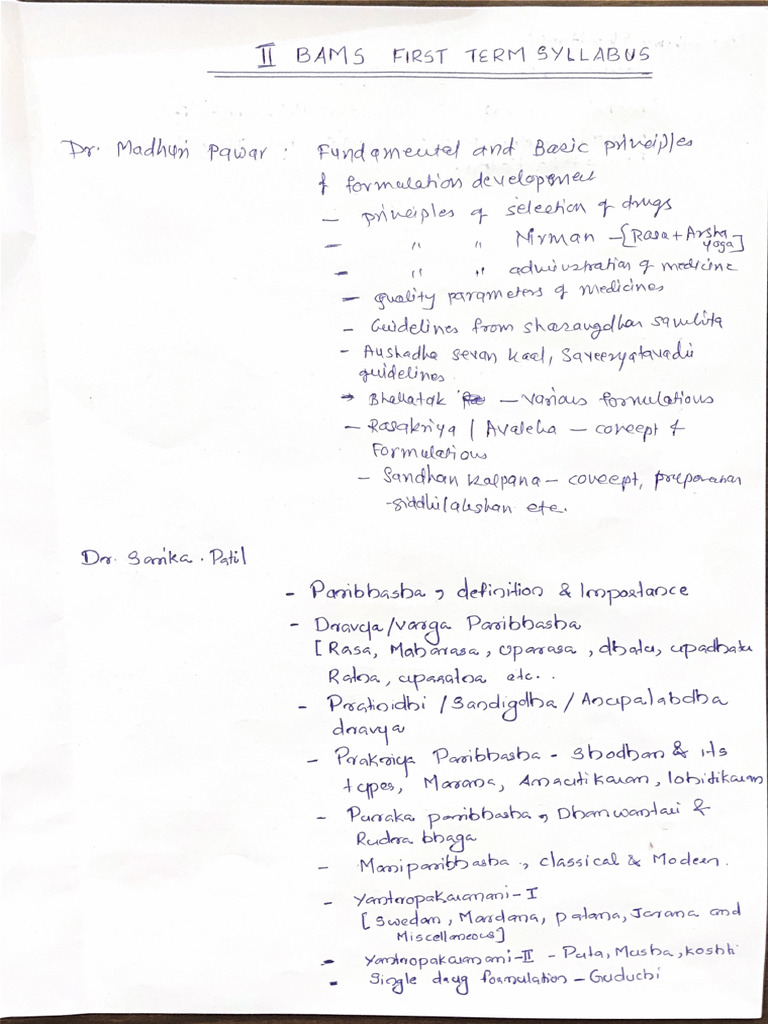 II BAMS FIRST TERM SYLLABUS
Dr. Madhuri Pawar : Fundamental and Basic principles
of formulation development
- principles of selection of drugs
- " " Nirman - [Rasa + Arsha yoga]
- " " administration of medicine
- quality parameters of medicines
- Guidelines from sharangdhar samhita
- Aushadha sevan kaal, Saveeryatavadhi
guidelines.
- Bhallatak - various formulations
- Rasakriya / Avaleha - concept &
Formulations
- Sandhan kalpana - concept, preparation
- siddhilakshan etc.
Dr. Sarika . Patil
- Paribhasha, definition & Importance
- Dravya/varga Paribhasha
[Rasa, Maharasa, uparasa, dhatu, upadhatu
Ratna, uparatna etc..
- Pratinidhi / Sandigdha / Anupalabdha
dravya
- Prakriya Paribhasha - Shodhan & its
types, Marana, Amrutikaran, lohitikaran
- Puraka paribhasha, Dhanwantari &
Rudra bhaga
- Maniparibhasha, classical & Modern.
- Yantropakaranani - I
[Swedan, Mardana, patana, Jarana and
Miscellaneous]
- Yantropakaranani - II - Puta, Musha, koshti
- Single drug formulation - Guduchi